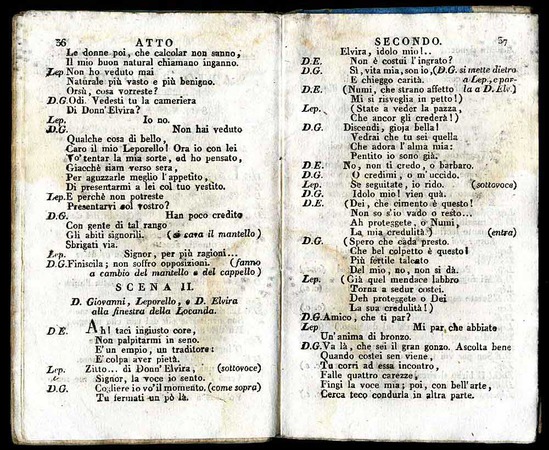 36 ATTO
Le donne poi, che calcolar non sanno,
Il mio buon natural chiamano inganno.
Lep. Non ho veduto mai
Naturale più vasto e più benigno.
Orsù, cosa vorreste?
D.G. Odi. Vedesti tu la cameriera
Di Donn'Elvira?
Lep. Io no.
D.G. Non hai veduto
Qualche cosa di bello,
Caro il mio Leporello! Ora io con lei
Vo'tentar la mia sorte, ed ho pensato,
Giacchè siam verso sera,
Per aguzzarle meglio l'appetito,
Di presentarmi a lei col tuo vestito.
Lep. E perchè non potreste
Presentarvi col vostro?
D.G. Han poco credito
Con gente di tal rango
Gli abiti signorili. (si cava il mantello
Sbrigati via.
Lep. Signor, per più ragioni...
D.G. Finiscila; non soffro opposizioni. (fanno
a cambio del mantello e del cappello)
SCENA II.
D. Giovanni, Leporello, e D. Elvira
alla finestra della Locanda.
D E. Ah! taci ingiusto core,
Non palpitarmi in seno.
E'un empio, un traditore:
E'colpa aver pietà.
Lep. Zitto... di Donn'Elvira, (sottovoce)
Signor, la voce io sento.
D.G. Cogliere io vo'il momento. (come sopra)
Tu fermati un pò là.
SECONDO. 37
Elvira, idolo mio!..
D.E. Non è costui l'ingrato?
D.G. Sì, vita mia, son io, (D.G. si mette dietro
E chieggo carità. a Lep., e par-
D.E. (Numi, che strano affetto la a D. Elv.)
Mi si risveglia in petto!)
Lep. (State a veder la pazza,
Che ancor gli crederà!)
D.G. Discendi, gioja bella!
Vedrai che tu sei quella
Che adora l'alma mia:
Pentito io sono già.
D.E. No, non ti credo, o barbaro.
D.G. O credimi, o m'uccido.
Lep. Se seguitate, io rido. (sottovoce)
D.G. Idolo mio! vien quà.
D.E. (Dei, che cimento è questo!
Non so s'io vado o resto...
Ah proteggete, o Numi,
La mia credulità) (entra)
D.G. (Spero che cada presto.
Che bel colpetto è questo!
Più fertile talento
Del mio, no, non si dà.
Lep. (Già quel mendace labbro
Torna a sedur costei.
Deh proteggete o Dei
La sua credulità!)
D.G. Amico, che ti par?
Lep Mi par che abbiate
Un'anima di bronzo.
D.G. Va là, che sei il gran gonzo. Ascolta bene
Quando costei sen viene,
Tu corri ad essa incontro,
Falle quattro carezze,
Fingi la voce mia; poi, con bell'arte,
Cerca teco condurla in altra parte.